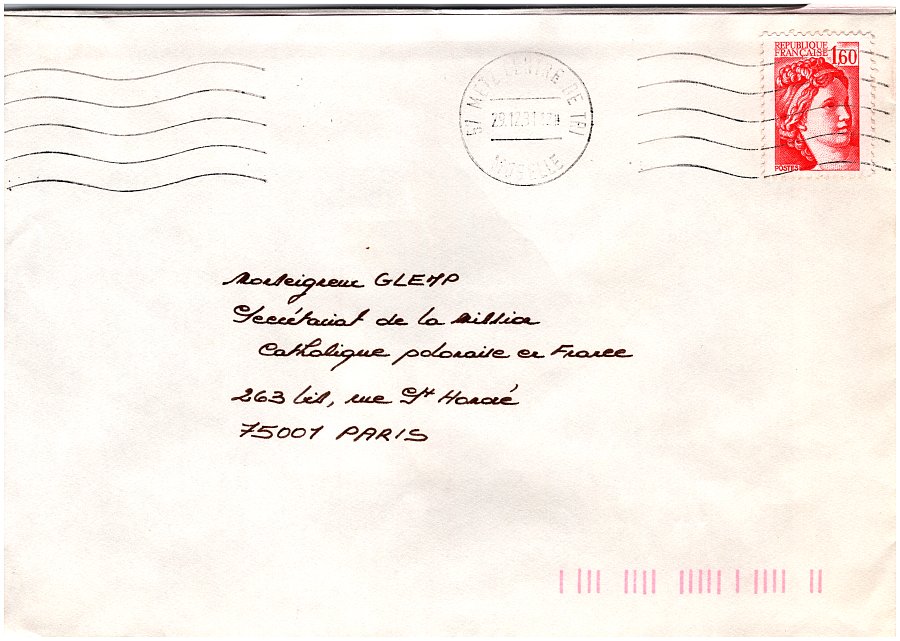 REPUBLIQUE
FRANÇAISE
1,60
POSTES
57 METZ CENTRE DE TRI
MOSELLE
Monseigneur GLEMP
Secrétariat de la Mission
Catholique polonaise en France
263 bis, rue St Honoré
75001 PARIS